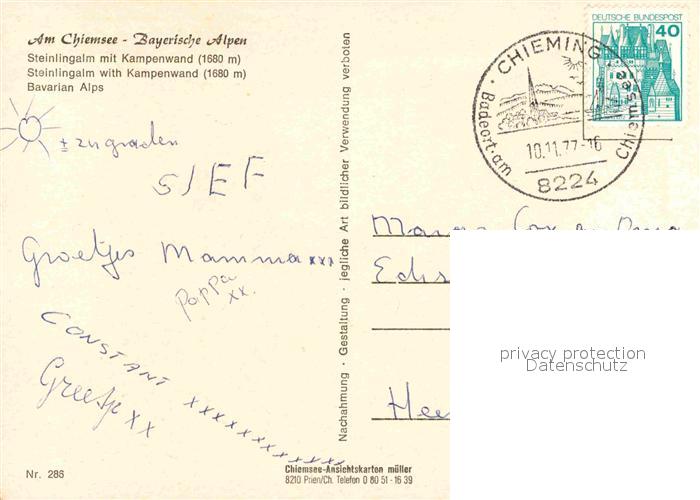 Am Chiemsee - Bayerische Alpen
Steinlingalm mit Kampenwand (1680 m)
Steinlingalm with Kampenwand (1680 m)
Bavarian Alps
SIEF
Groetjes Mamma xxx
Pappa
xx.
CONSTANT xxxxxxxxxxxx
Greetje xx
Nr. 286
Nachahmung · Gestaltung · jegliche Art bildlicher Verwendung verboten
Chiemsee-Ansichtskarten müller
8210 Prien/Ch. Telefon 0 80 51 - 16 39
DEUTSCHE BUNDESPOST
40
CHIEMING
Badeort · am Chiemsee
10.11.77-16
8224
privacy protection
Datenschutz